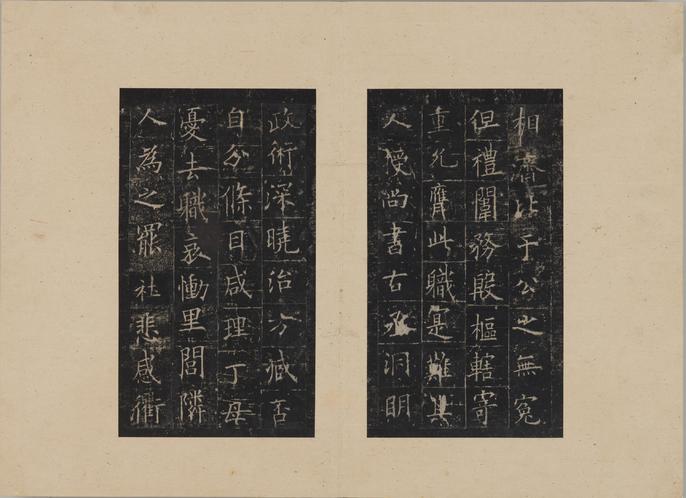 相濟比于公之無冤
但禮闈務殷樞轄寄
重允膺此職是難其
人授尚書右丞洞明
政術深曉治方臧否
自分條目咸理丁母
憂去職哀慟里閭隣
人為之罷社悲感衢